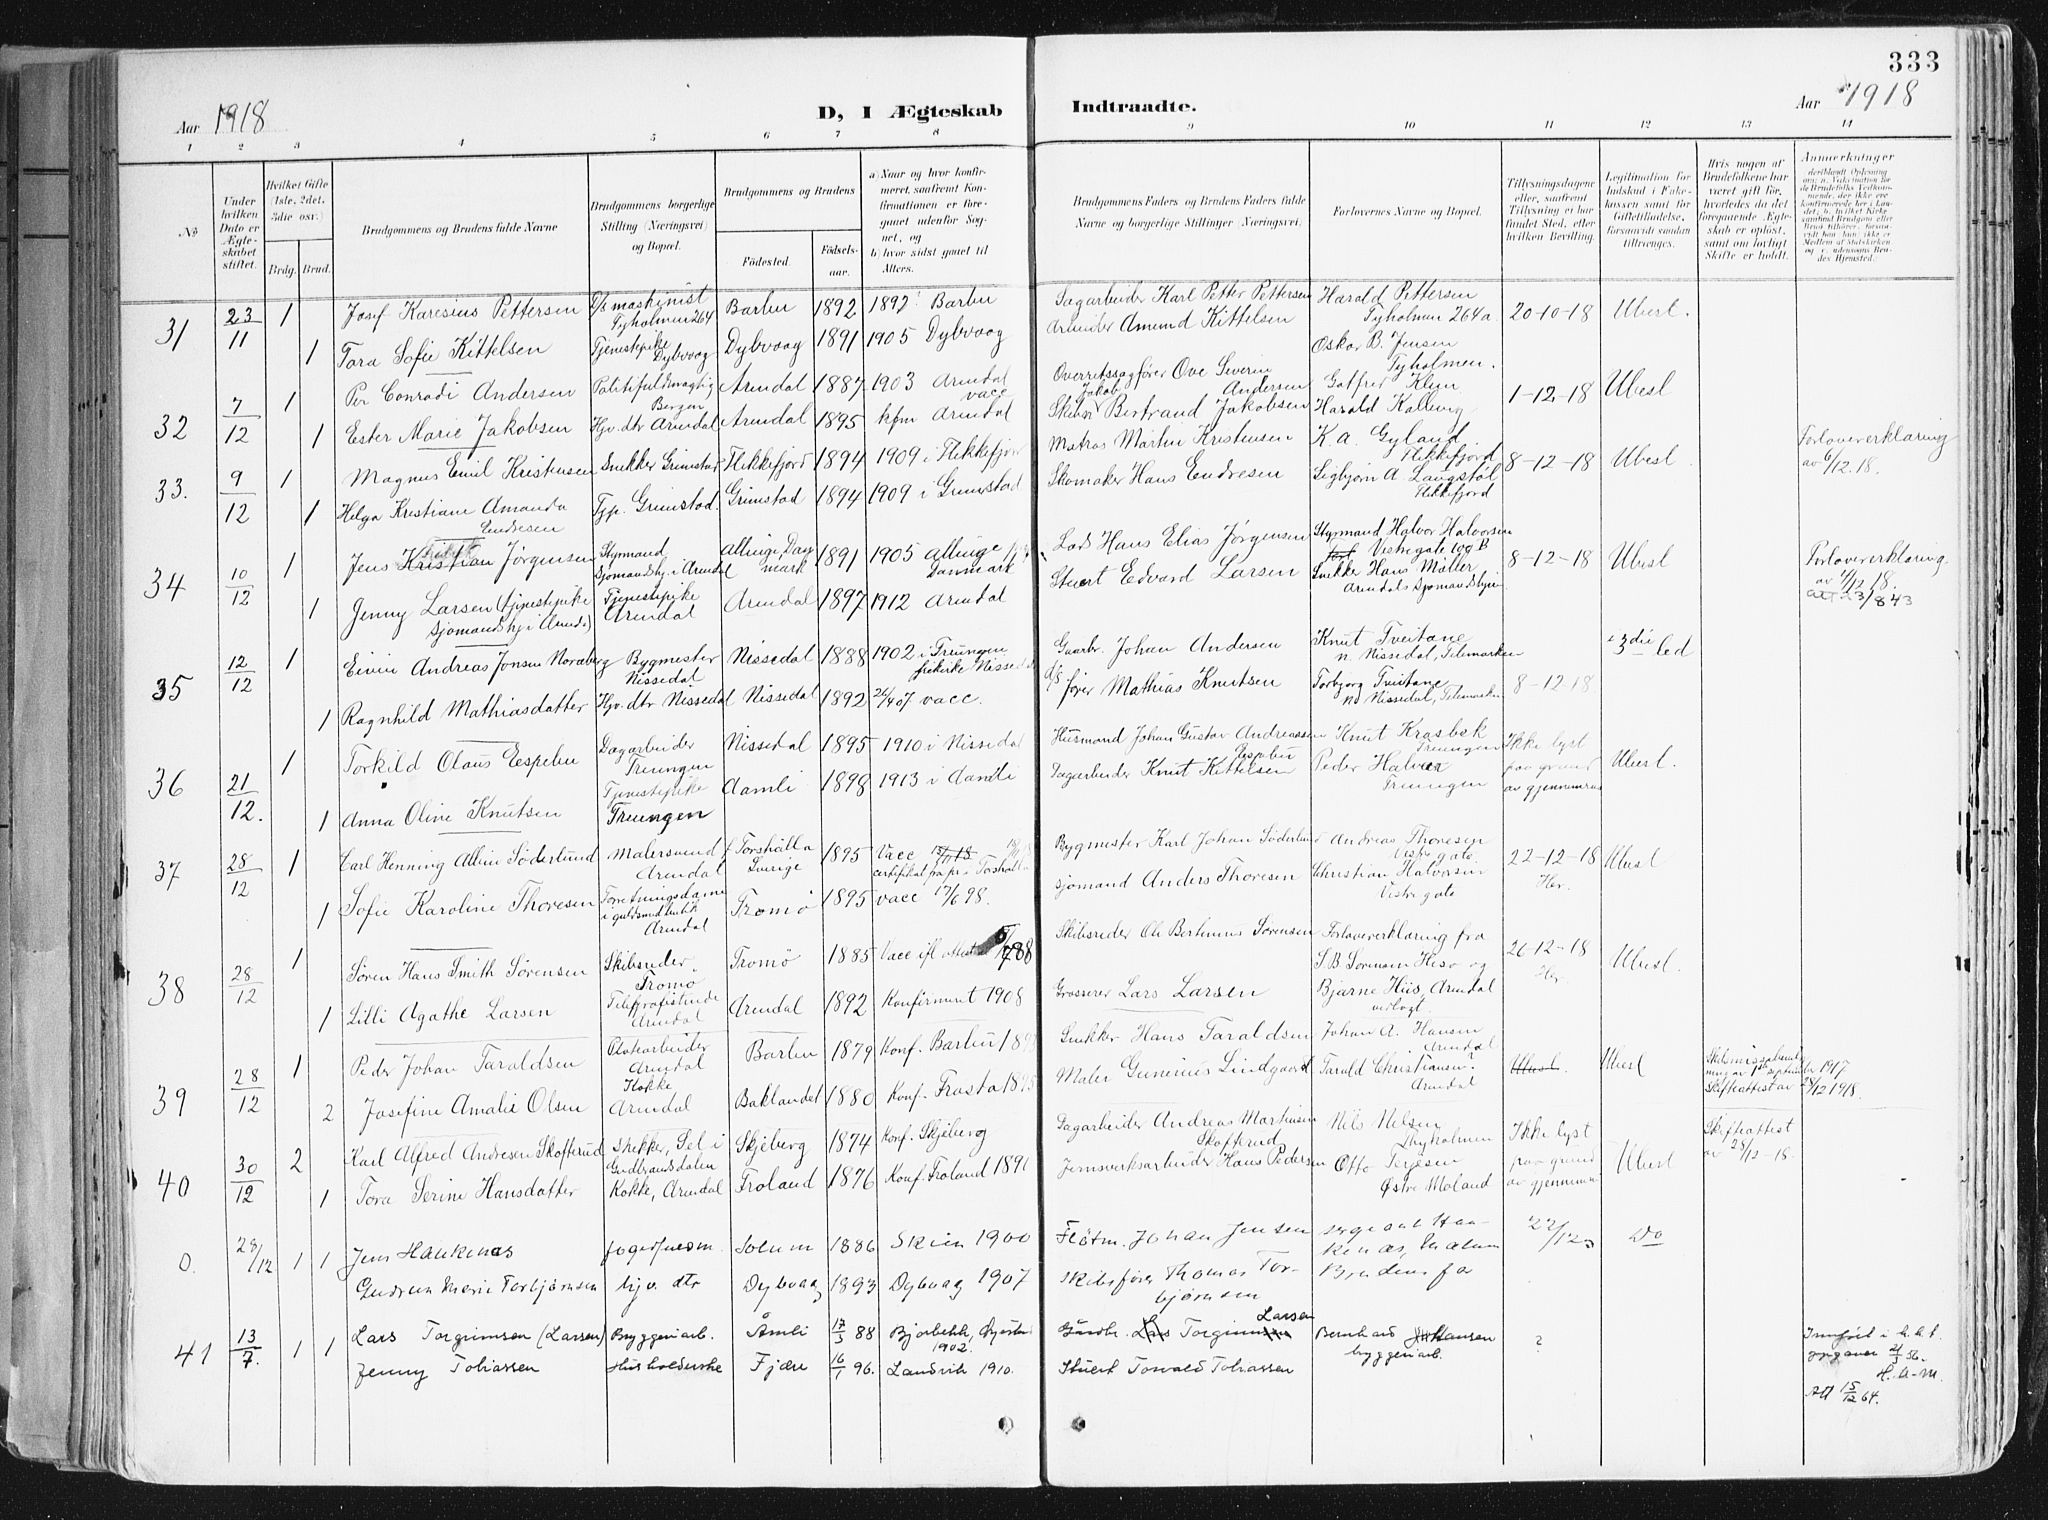 333
Aar 1918
D, I Ægteskab Indtraadte.
Aar 1918
1 2 3 4 5 6 7 8 9 10 11 12 13 14
No
Under hvilken Dato er Ægteskabet stiftet.
Hvilket Gifte (1ste, 2det, 3die osv.)
Brdg. Brud.
Brudgommens og Brudens fulde Navne
Brudgommens borgerlige Stilling (Næringsvei) og Bopæl.
Brudgommens og Brudens
Fødested. Fødselsaar.
a) Naar og hvor konfirmeret, saafremt Konfirmationen er foregaaet udenfor Sognet, og
b) hvor sidst gaaet til Alters.
Brudgommens Faders og Brudens Faders fulde Navne og borgerlige Stillinger (Næringsvei).
Forlovernes Navne og Bopæl.
Tillysningsdagene eller, saafremt Tillysning ei har fundet Sted, efter hvilken Bevilling.
Legitimation for Indskud i Enkekassen samt for Giftetilladelse, forsaavidt saadan tiltrænges.
Hvis nogen af Brudefolkene har været gift før, hvorledes da det foregaaende Ægteskab er opløst, samt om lovligt Skifte er holdt.
Anmærkninger
31 23/11 1 Josef Karesius Pettersen D/s maskinist Tyholmen 264 Barbu 1892 1892 Barbu Dagarbeider Karl Petter Pettersen Harald Pettersen Tyholmen 264a. 20-10-18 Ubest.
1 Tora Sofie Kittelsen Tjenestepike Dybvaag Dybvaag 1891 1905 Dybvaag Arbeider Amund Kittelsen Oskar B. Jensen Tyholmen.
32 7/12 1 Per Conradi Andersen Politifuldmægtig Bergen Arendal 1887 1903 Arendal vacc Overretssagfører Ove Severin Jakob Andersen Gotfred Klem 1-12-18 Ubest
1 Ester Marie Jakobsen Hjv. dtr Arendal Arendal 1895 kfm Arendal Bertrand Jakobsen Harald Kallevig
33. 9/12 1 Magnus Emil Kristensen Snekker Grimstad Flekkefjord 1894 1909 i Flekkefjor Matros Martin Kristensen K. A. Gyland Flekkefjord 8-12-18 Ubest Forlovererklæring av 6/12.18.
1 Helga Kristiane Amanda Endresen Tjp. Grimstad. Grimstad 1894 1909 i Grimstad Skomaker Hans Endresen Sigbjørn A Langstøl Flekkefjord
34 10/12 1 Jens Kristian Jørgensen Styrmand Sjømandshj. i Arendal Allinge, Danmark 1891 1905 Allinge Danmark Lods Hans Elias Jørgensen Styrmand Halvor Halvorsen Vestregate 10 B 8-12-18 Ubest Forlovererklæring av 7/12 18.
1 Jenny Larsen (tjenestepike Sjømandshj i Arendal) Tjenestepike Arendal Arendal 1897 1912 Arendal Stuert Edvard Larsen Snekker Hans Møller Arendals Sjømandshjem Att 23/8 43
35 12/12 1 Eivin Andreas Jonsen Noraberg Bygmester Nissedal Nissedal 1888 1902 i Treungen frikirke Nissedal Gaardbr. Johan Andersen Knut Tveitane n. Nissedal, Telemarken 8-12-18 3die led
1 Ragnhild Mathiasdatter Hjv. dtr Nissedal Nissedal 1892 26/4 07 vacc. D/s fører Mathias Knutsen Torbjørg Tveitane nd Nissedal, Telemarken
36 21/12. 1 Torkild Olaus Espebu Dagarbeider Treungen Nissedal 1895 1910 i Nissedal Husmand Johan Gustav Andreassen Espebu Knut Krosbek Treungen Ikke lyst paa grund av gjennemrei Ubest.
1 Anna Oline Knutsen Tjenestepike Treungen Aamli 1898 1913 i Aamli Dagarbeider Knut Kittelsen Peder Halvor Treungen
37 28/12 1 Carl Henning Albin Söderlund Malersvend Arendal Torshälla Sverige 1895 Vacc certifikat fra pr. Torshälla Bygmester Karl Johan Söderlund Andreas Thoresen Vestregate. 22-12-18 Her. Ubest
1 Sofie Karoline Thoresen Forretningsdame i guldsmedbutik Arendal Tromø 1895 vacc 17/6 98. Sjømand Anders Thoresen Christian Halvorsen Vestregate
38 28/12 1 Søren Hans Smith Sørensen Skibsreder Tromø Tromø 1885 Vacc ifl attest 88 Skibsreder Ole Bertinius Sørensen Forlovererklæring fra S. B Sørensen Hisø og 26-12-18 Her. Ubest.
1 Lilli Agathe Larsen Telegrafistinde Arendal Arendal 1892 Konfirmert 1908 Grosserer Lars Larsen Bjarne Hiis, Arendal vedlagt.
39 28/12 1 Peder Johan Taraldsen Platearbeider Arendal Barbu 1879 Konf. Barbu Snekker Hans Taraldsen Johan A. Hansen Arendal Ubest. Ubest
2 Josefine Amalie Olsen Kokke Arendal Baklandet 1880 Konf. Frosta Maler Gunerius Lindgaard Tarald Christiansen Arendal Skilsmissebevilling av 1ste september 1917 Skifteattest av 28/12 1918.
40 30/12 2 Karl Alfred Andresen Skofterud Snekker, Sel i Gudbrandsdalen Skjeberg 1874 Konf. Skjeberg Dagarbeider Andreas Martinsen Skofterud Nils Nilsen Thyholmen Ikke lyst paa grund av gjennemrei Ubest Skifteattest av 28/12-18.
1 Tora Serine Hansdatter Kokke, Arendal Froland 1876 Konf. Froland 1891 Jernverksarbeider Hans Pedersen Otto Terjesen Østre Moland
0. 28/12 1 1 Jens Haukenæs Solum 1886 Skien 1900 Fløtm. Johan Jensen sergeant Haukenæs, 22/12 Do
Gudrun Marie Torbjørnsen hjv. dtr Dybvaag 1893 Dybvaag 1907 Skibsfører Thomas Torbjørnsen Brudens far
41 13/7. 1 1 Lars Torgrimsen (Larsen) Byggeriarb. Åmli 17/3 88 Bjorbekk, Øyestad 1902 Gårdbr. Lars Torgrimsen Larsen Bernhard Johansen byggeriarb. ? Innført i h.h.t. oppgaver 21/3 56. H. A-M.
Jenny Tobiassen Husholderske Fjære 16/1 96. Landvik 1910. Stuert Torvald Tobiassen Att 15/12 64.